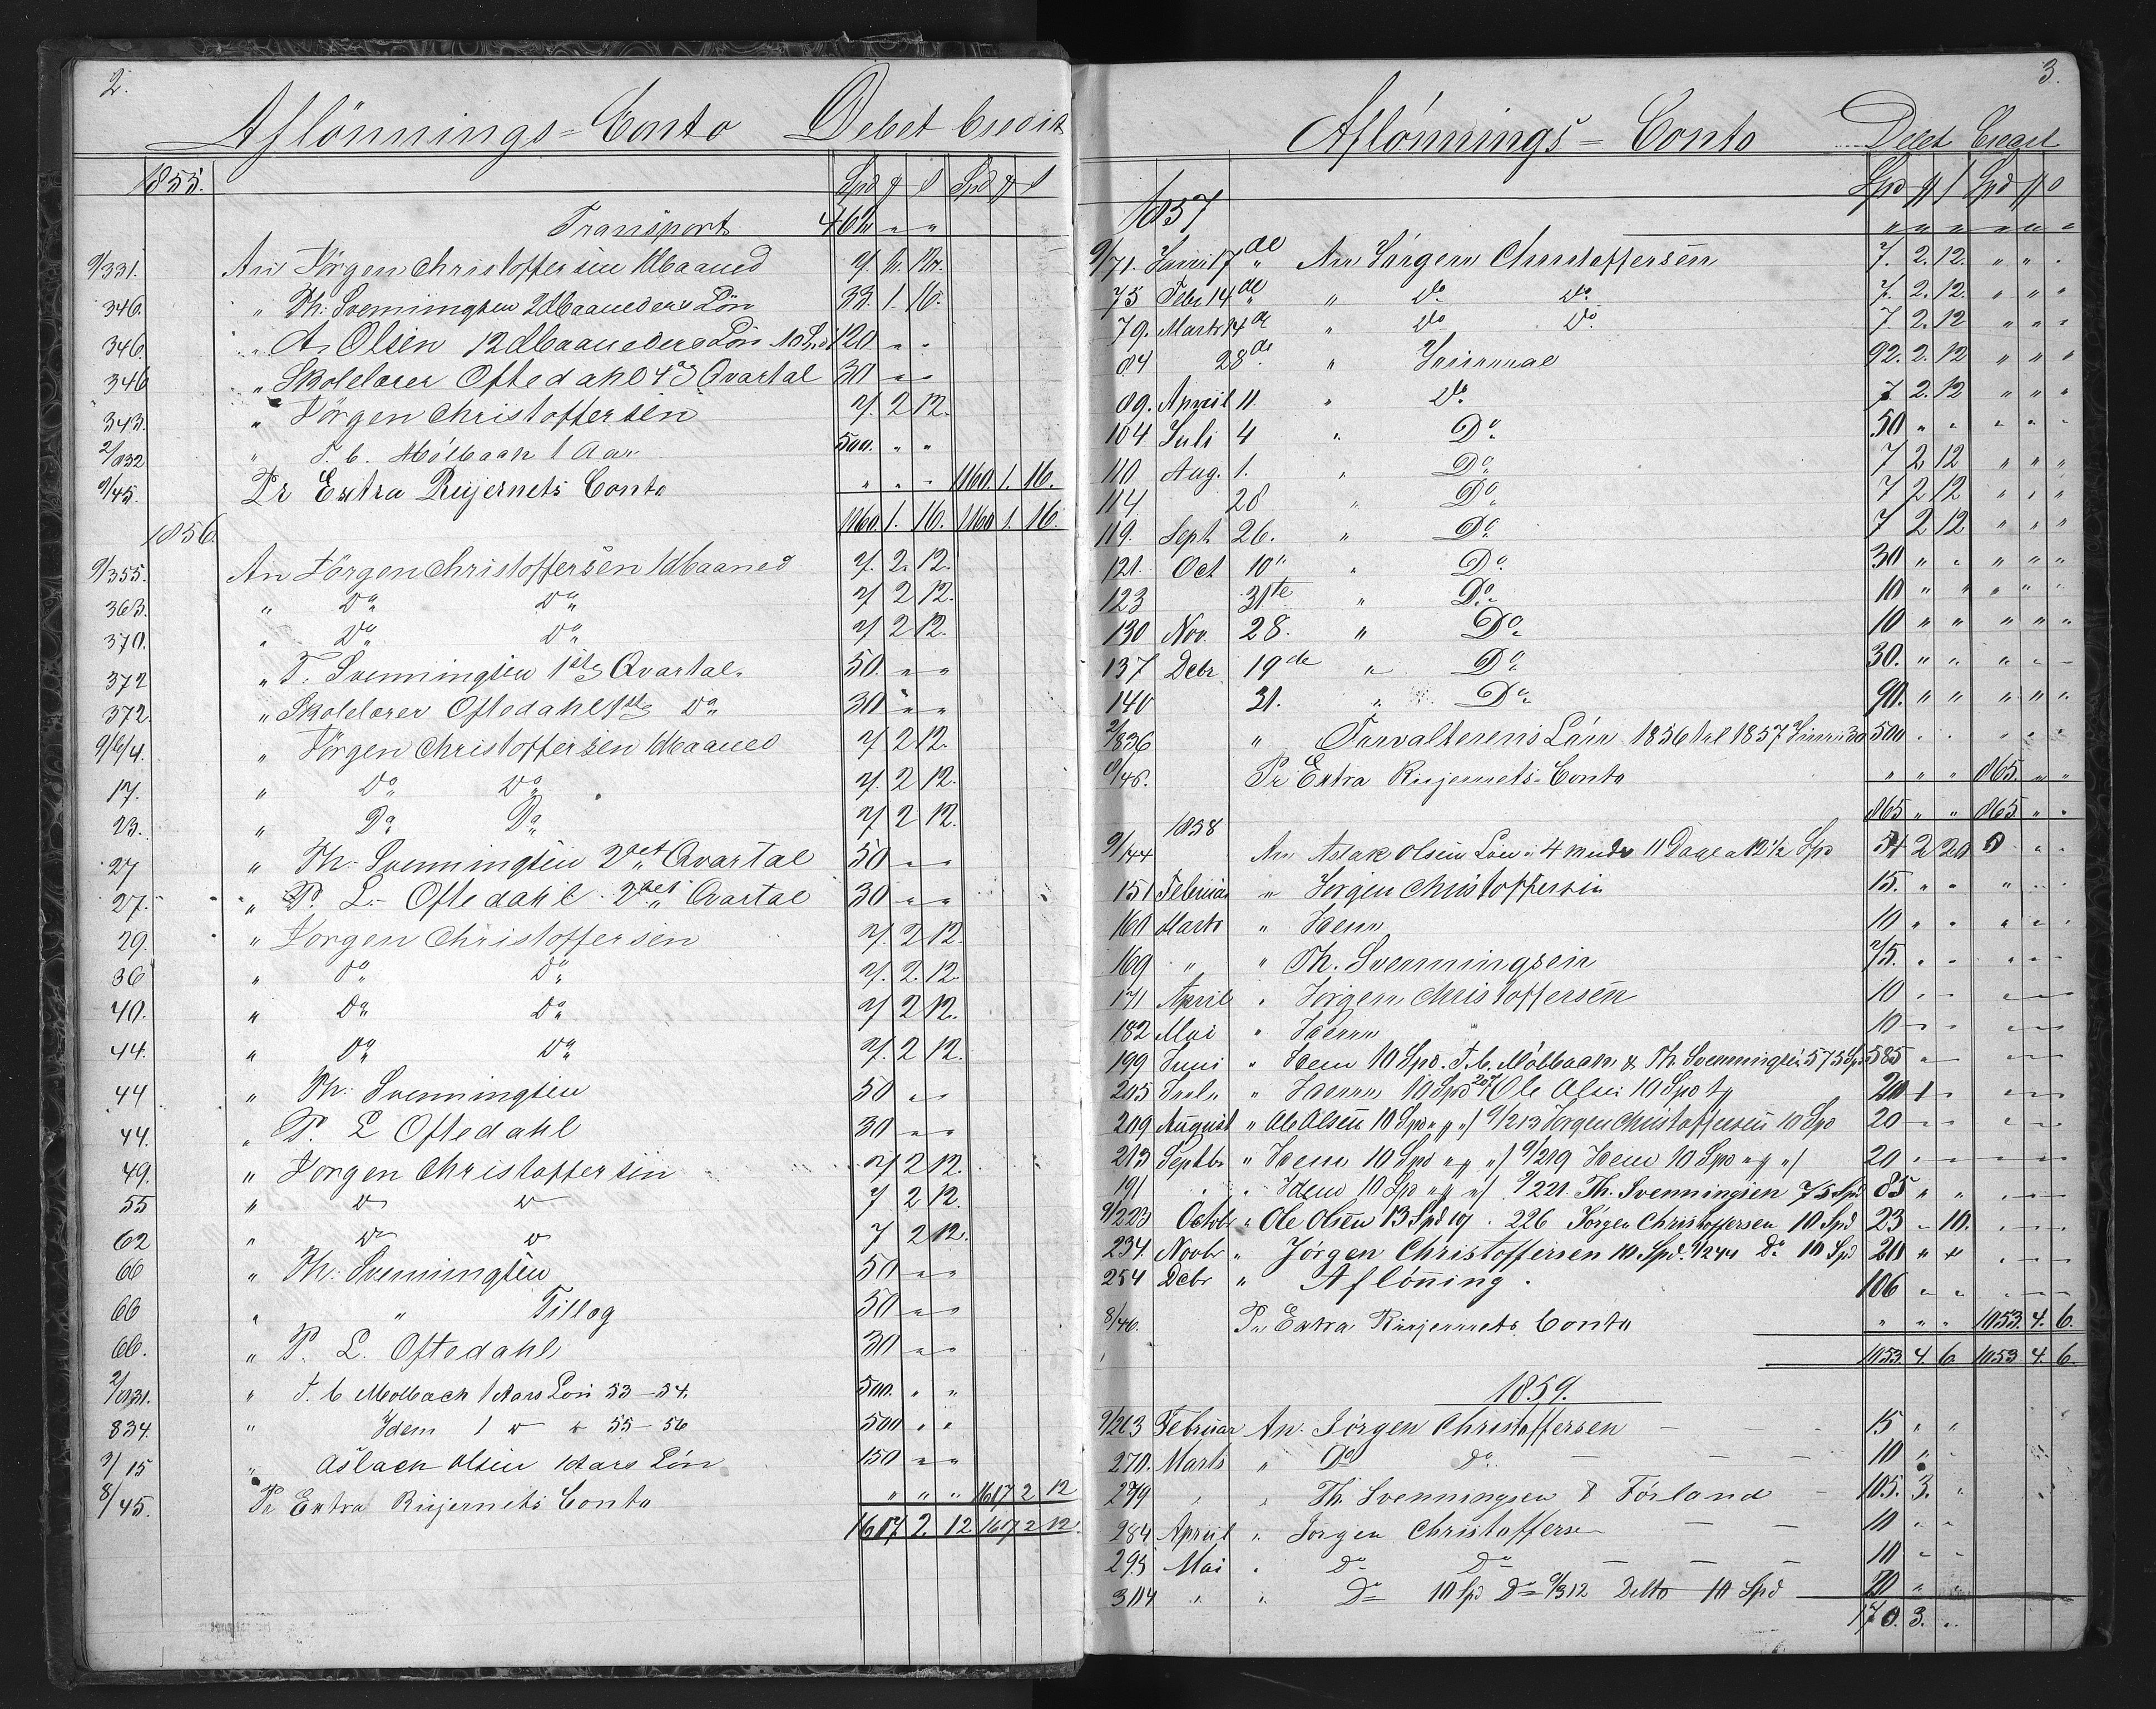 2.
Aflönnings=Conto Debet Credit
1855. Spd # s Spd # s
Transport 462 " "
9/331. An Jörgen Christoffersen 1 Maaned 7. 2. 12.
346. " Th: Svenningsen 2 Maaneders Lön 33. 1. 16.
346. " A. Olsen 12 Maaneders Lön 10 Spd 120 " "
346 " Skolelærer Oftedahl 4de Qvartal 30 " "
343. " Jörgen Christoffersen 7. 2 12.
2/832 " T. C. Mölbach 1 Aar 500. " "
9/45. Pr Extra Revjernets Conto " " " 1160. 1. 16.
1160. 1. 16. 1160 1. 16.
1856.
9/355. An Jörgen Christoffersen 1 Maaned 7. 2. 12.
363. " Do Do 7 2 12.
370. " Do Do 7 2 12.
372 " T. Svenningsen 1ste Qvartal 50. " "
372. " Skolelærer Oftedahl 1ste Do 30 " "
9/6/4. " Jörgen Christoffersen 1 Maaned 7 2 12.
17. " Do Do 7. 2 12.
23. " Do Do 7 2 12.
27 " Th: Svenningsen 2det Qvartal 50 " "
27. " P. L. Oftedahl 2det Qvartal 30 " "
29. " Jorgen Christoffersen 7. 2 12.
36 " Do Do 7. 2. 12.
40. " Do Do 7 2 12.
44. " Do Do 7. 2 12.
44 " Th: Svenningsen 50 " "
44. " P. L Oftedahl 30 " "
49. " Jorgen Christoffersen 7 2 12.
55 " Do Do 7 2 12.
62 " Do Do 7 2 12.
66 " Th: Svenningsen 50 " "
66 " " Tillæg 50 " "
66. " P. L. Oftedahl 30 " "
2/831. " T. C Molbach 1 Aars Lön 53-54. 500. " "
834. " Idem 1 Do Do 55-56 500 " "
3/15 " Aslach Olsen 1 Aars Lön 150 " "
8/45. Pr Extra Revjernets Conto " " " 1617 2 12
1617 2. 12 1617 2 12.
3.
Aflönnings=Conto Debet Credit
Spd # s Spd # s
1857
" " " " " "
9/71. Januar 17de An Jörgen Christoffersen 7. 2. 12. " " "
75 Febr 14de " Do Do 7. 2. 12. " " "
79. Marts 14de " Do Do 7 2. 12 " " "
84 28de " 92. 2. 12 " " "
89. April 11 " Do 7 2. 12 " " "
104 Juli 4 " Do 50 " " " " "
110 Aug. 1. " Do 7 2 12 " " "
114 28 " Do 7 2 12 " " "
119. Sept 26. " Do 7 2 12 " " "
121. Oct 10" " Do 30 " " " " "
123 31te " Do 10 " " " " "
130 Nov. 28. " Do 10 " " " " "
137 Debr 19de " Do 30. " " " " "
140 31. " Do 90. " " " " "
2/836 " Forvalterens Lönn 1856 til 1857 Juni 30 500 " " " " "
9/45. Pr Extra Revjernets Conto " " " 865. " "
865 " " 865 " "
1858
9/144 An Aslak Olsen Lön i 4 Mndr 11 Dage a 12½ Spd 54 2 20 0 " "
151 Februar " Jorgen Christoffersen 15. " " " " "
160 Marts " Idem 10 " " " " "
169 " " Th. Svenningsen 75. " " " " "
171 April " Jorgen Christoffersen 10 " " " " "
182 Mai " Idem 10 " " " " "
199 Juni " Idem 10 Spd. T. C. Mölbach & Th Svenningsen 575 Spd 585 " " " " "
205 Juli " Idem 10 Spd 207 Ole Olsen 10 Spd 1 # 20 1 " " " "
209 August " Ole Olsen 10 Spd " # " s 9/213 Jorgen Christoffersen 10 Spd 20 " " " " "
213 Septbr " Idem 10 Spd " # " s 9/219 Idem 10 Spd " # " s 20 " " " " "
191 " " Idem 10 Spd " # " s 9/221. Th. Svenningsen 75 Spd 85 " " " " "
9/223 Octobr " Ole Olsen 13 Spd 10 s. 226 Jörgen Christoffersen 10 Spd 23 " 10. " " "
234. Novbr " Jörgen Christoffersen 10 Spd. 9/244 Do 10 Spd 20 " " " " "
254 Debr " Aflönning. 106 " " " " "
8/46. Pr Extra Revjernets Conto " " " 1053. 4. 6.
1053. 4. 6 1053 4. 6.
1859.
9/263 Februar An Jörgen Christoffersen 15 " "
270. Marts " Do Do 10 " "
279 " " Th Svenningsen & Förland 105. 3. "
284 April " Jorgen Christoffersen 10 " "
295 Mai " Do Do 10 " "
304 " " Do 10 Spd Do 9/312 Ditto 10 Spd 20 " "
170. 3. "